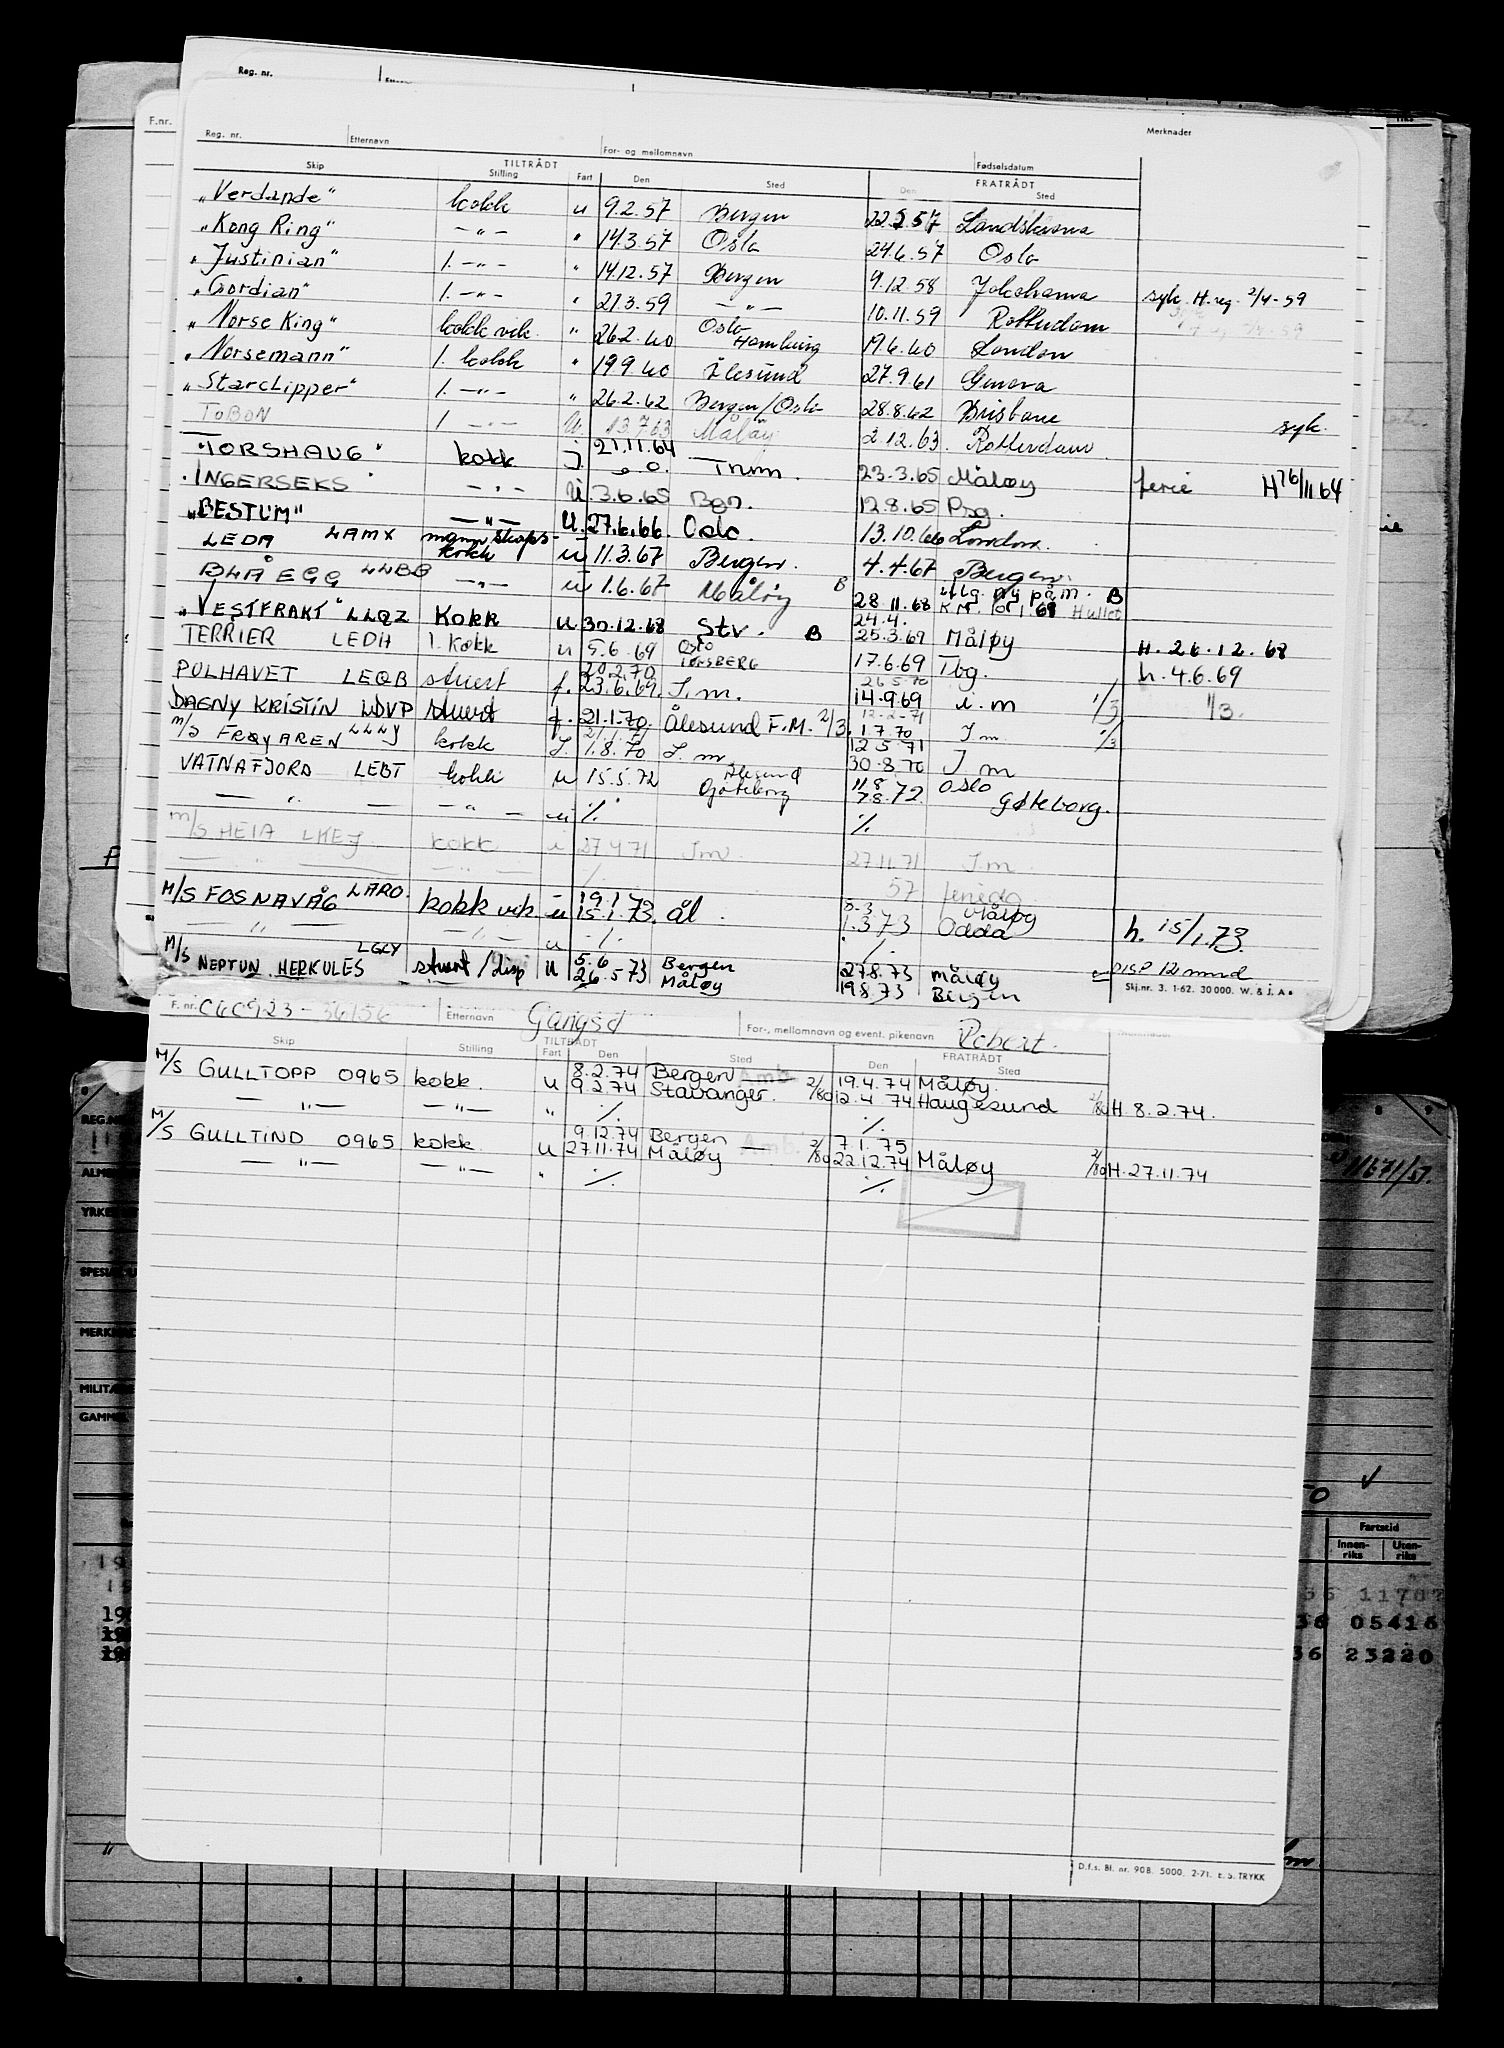 Reg. nr.
F.nr.
Reg. nr. Etternavn For- og mellomnavn Fødselsdatum Merknader
TILTRÅDT FRATRÅDT
Skip Stilling Fart Den Sted Den Sted
"Verdande" kokk u 9.2.57 Bergen 22.2.57 Landskrona
"Kong Ring" — " — " 14.3.57 Oslo 24.6.57 Oslo
"Justinian" 1. — " — " 14.12.57 Bergen 9.12.58 Yokohama syk. H.reg. 2/4-59
"Gordian" 1. — " — " 21.3.59 — " — 10.11.59 Rotterdam
"Norse King" kokk vik. " 26.2.60 Oslo Hamburg 19.6.60 London
"Norsemann" 1. kokk " 19.9.60 Ålesund 27.9.61 Genova
"Starclipper" 1. — " — " 26.2.62 Bergen/Oslo 28.8.62 Brisbane syk.
TOBON 1 — " — U. 13.7.63 Måløy 2.12.63. Rotterdam
"TORSHAUG" kokk J. 21.11.64 Trnm. 23.3.65 Måløy ferie H 16/11 64
"INGERSEKS — " — U. 3.6.65 Bgn. 12.8.65 Brg.
"BESTUM" — " — U. 27.6.66 Oslo. 13.10.66 London.
LEDA LAMX mannskaps-kokk u 11.3.67 Bergen. 4.4.67 Bergen.
BLÅEGG LLBG — " — u 1.6.67 Måløy B 28.11.68 utlg. ny på m. B K.Nr. for 1. 69 Hullet
"VESTFRAKT" LLQZ Kokk u 30.12.68 Stv. B 24.4. 25.3.69 Måløy H. 26.12.68
TERRIER LEDH 1. Kokk u 5.6.69 Oslo TØNSBERG 17.6.69 Tbg. h. 4.6.69
POLHAVET LEQB stuert f. 20.2.70 23.6.69. I.m. 26.5.70 14.9.69 i.m 1/3 1/3.
DAGNY KRISTIN LDVP stuert f. 21.1.70. Ålesund F.M. 2/3. 12.2.71 1.7.70 I m 1/3
M/S FRØYAREN LLLY kokk J. 21.1.71 1.8.70 I.m 12.5.71 30.8.70 I m
VATNAFJORD LEBT kokk u 15.5.72 Ålesund Göteborg 11.8 7.8.72 Oslo Gøteborg.
— " — — " — u ./. ./.
M/S HEIA LKEJ kokk u 27.4.71 Im. 27.11.71 Im
— " — — " — ./. 57
M/S FOSNAVÅG LARO. kokk vik u 19.1.73 15.1.73. ål. 8.3 1.3.73 Måløy Odda h. 15/1.73.
— " — — " — u ./. ./.
M/S NEPTUN HERKULES LGLY stuert/disp u 5.6 73 26.5.73 Bergen Måløy 27.8.73 19.8.73 Måløy Bergen DISP 12 mnd
Skj.nr. 3. 1-62. 30 000. W. & J. A.
F. nr. 060923-36156 Etternavn Gangsø For-, mellomnavn og event. pikenavn Robert. Merknader
TILTRÅDT FRATRÅDT
Skip Stilling Fart Den Sted Den Sted
M/S GULLTOPP 0965 kokk. u 8.2.74 9.2.74 Bergen Amb. Stavanger. 2/80 19.4.74 12.4.74 Måløy. Haugesund 2/80 H. 8.2.74.
— " — — " — " ./. ./.
M/S GULLTIND 0965 kokk. u 9.12.74 27.11.74 Bergen Amb. Måløy 2/80 7.1.75 22.12.74 Måløy 2/80 H. 27.11.74
— " — — " — " ./. ./.
REG.N
11671/51.
YRKE
SPESIA
MERK
MILITÆ
GAMME
Fartstid
Innen-riks Uten-riks
36 11707
36 05416
36 23220
D.f.s. Bl. nr. 908. 5000. 2-71. E. S. TRYKK